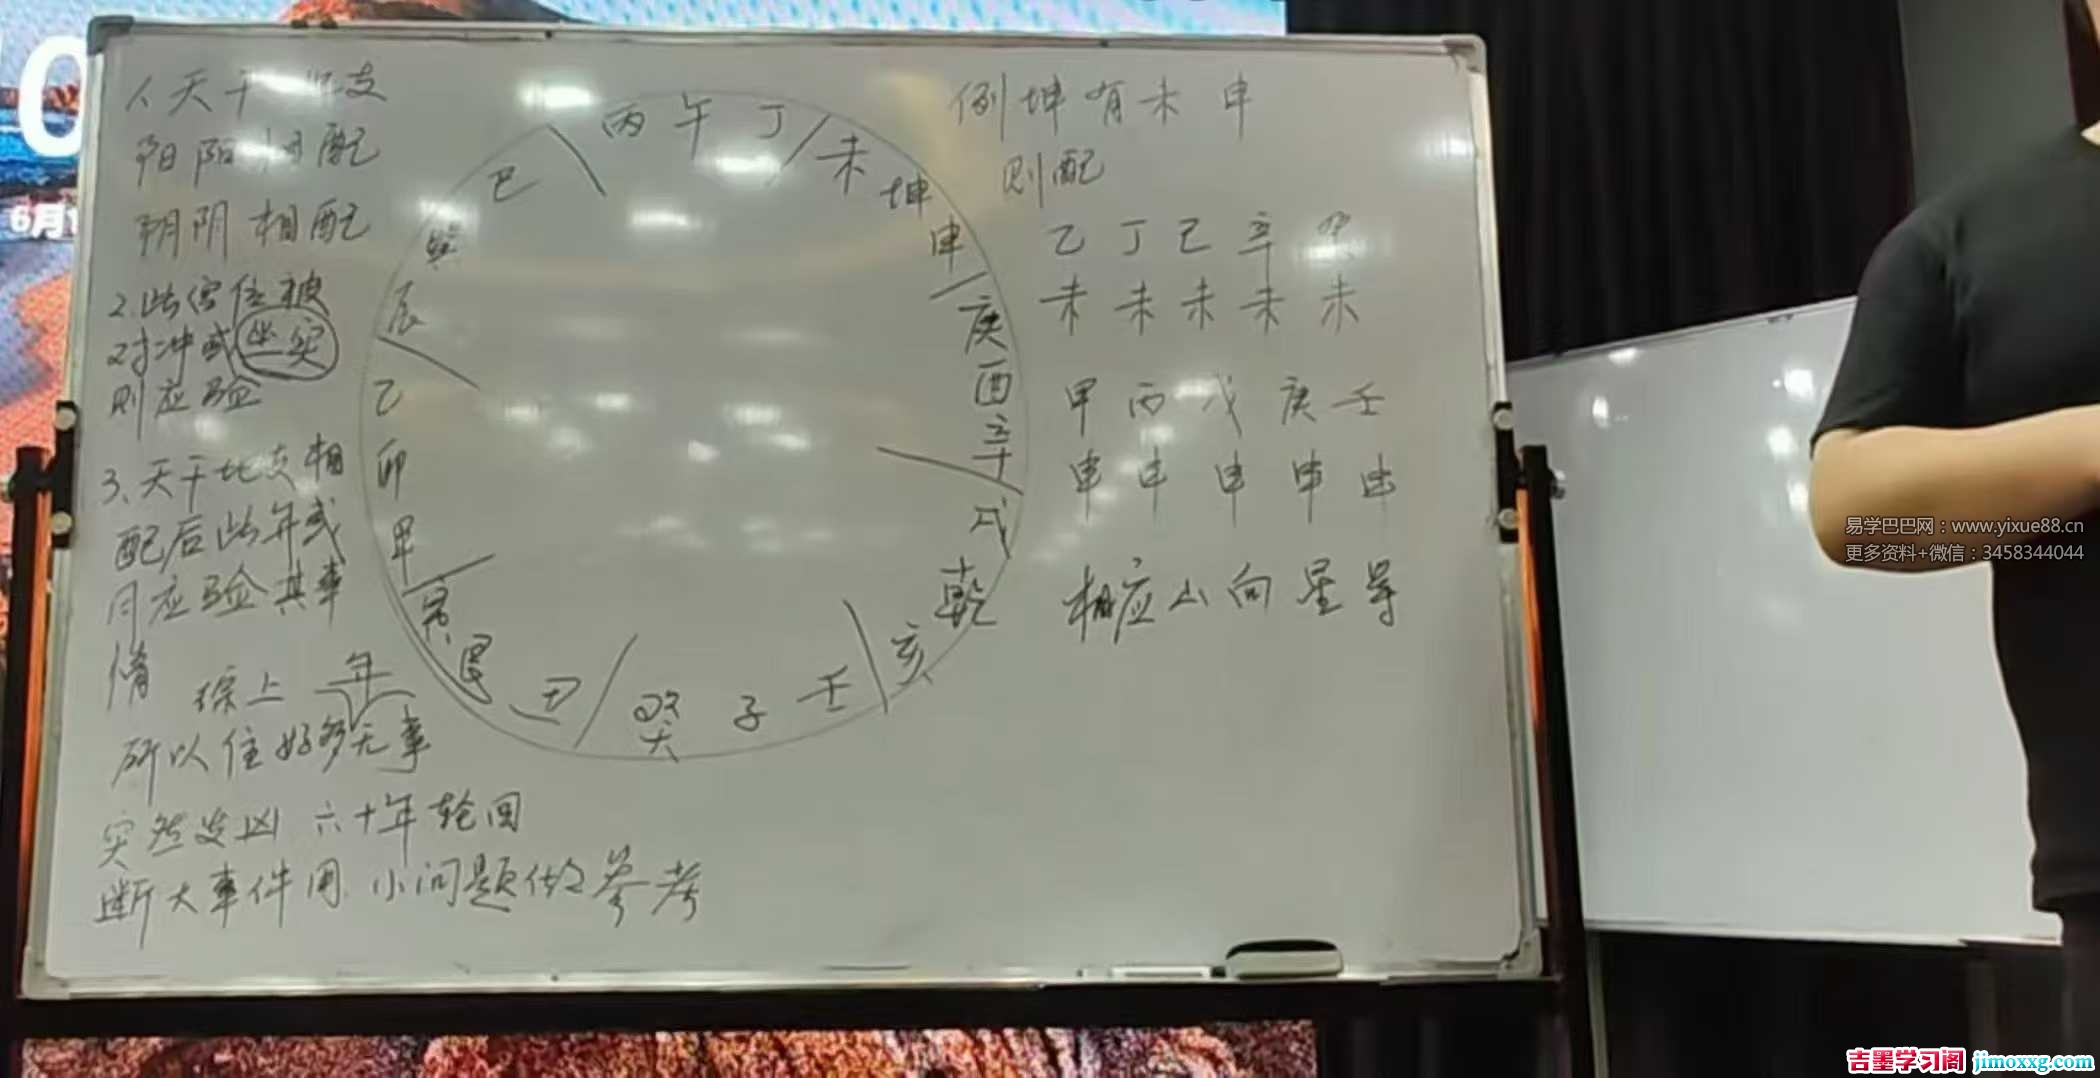 1、天干地支
阳阳相配
阴阴相配
2.此宫位被
对冲或坐实
则应验
3、天干地支相
配后此年或
月应验其事
情
综上
年
所以住好多无事
突然发凶 六十年轮回
断大事件用.小问题做参考
丙 午 丁
未 坤 申
庚 酉 辛
戌 乾 亥
壬 子 癸
丑 艮 寅
甲 卯 乙
辰 巽 巳
例 坤 有 未 申
则配
乙 丁 己 辛 癸
未 未 未 未 未
甲 丙 戊 庚 壬
申 申 申 申 申
相应山向星号
6月1
易学巴巴网：www.yixue88.cn
更多资料+微信：3458344044
吉墨学习阁 jimoxxg.com